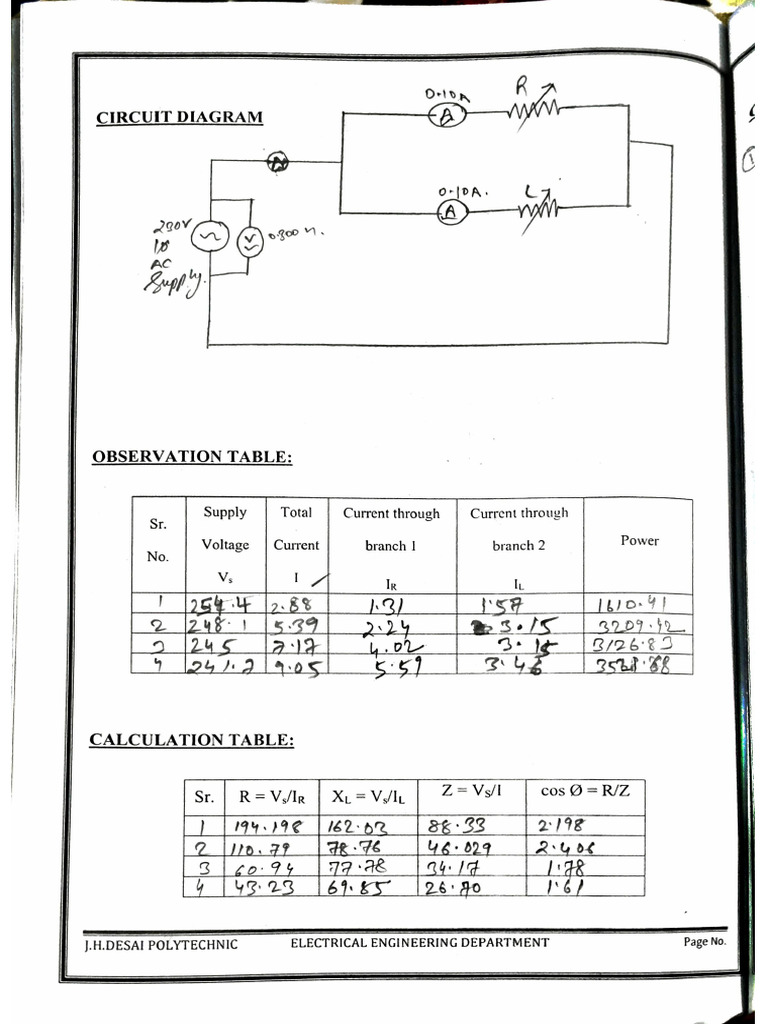 CIRCUIT DIAGRAM
0-10A
R
A
A
0-10A.
L
A
230V
1Ø
AC
Supply.
V
0.300 V.
OBSERVATION TABLE:
Sr. No. Supply Voltage Vs Total Current I Current through branch 1 IR Current through branch 2 IL Power
1 254.4 2.88 1.31 1.57 1610.41
2 248.1 5.39 2.24 3.15 3209.42
3 245 7.17 4.02 3.15 3126.83
4 241.7 9.05 5.59 3.46
CALCULATION TABLE:
Sr. R = Vs/IR XL = Vs/IL Z = Vs/I cos Ø = R/Z
1 194.198 162.03 88.33 2.198
2 110.79 78.76 46.029 2.406
3 60.94 77.78 34.17 1.78
4 43.23 69.85 26.70 1.61
J.H.DESAI POLYTECHNIC ELECTRICAL ENGINEERING DEPARTMENT Page No.